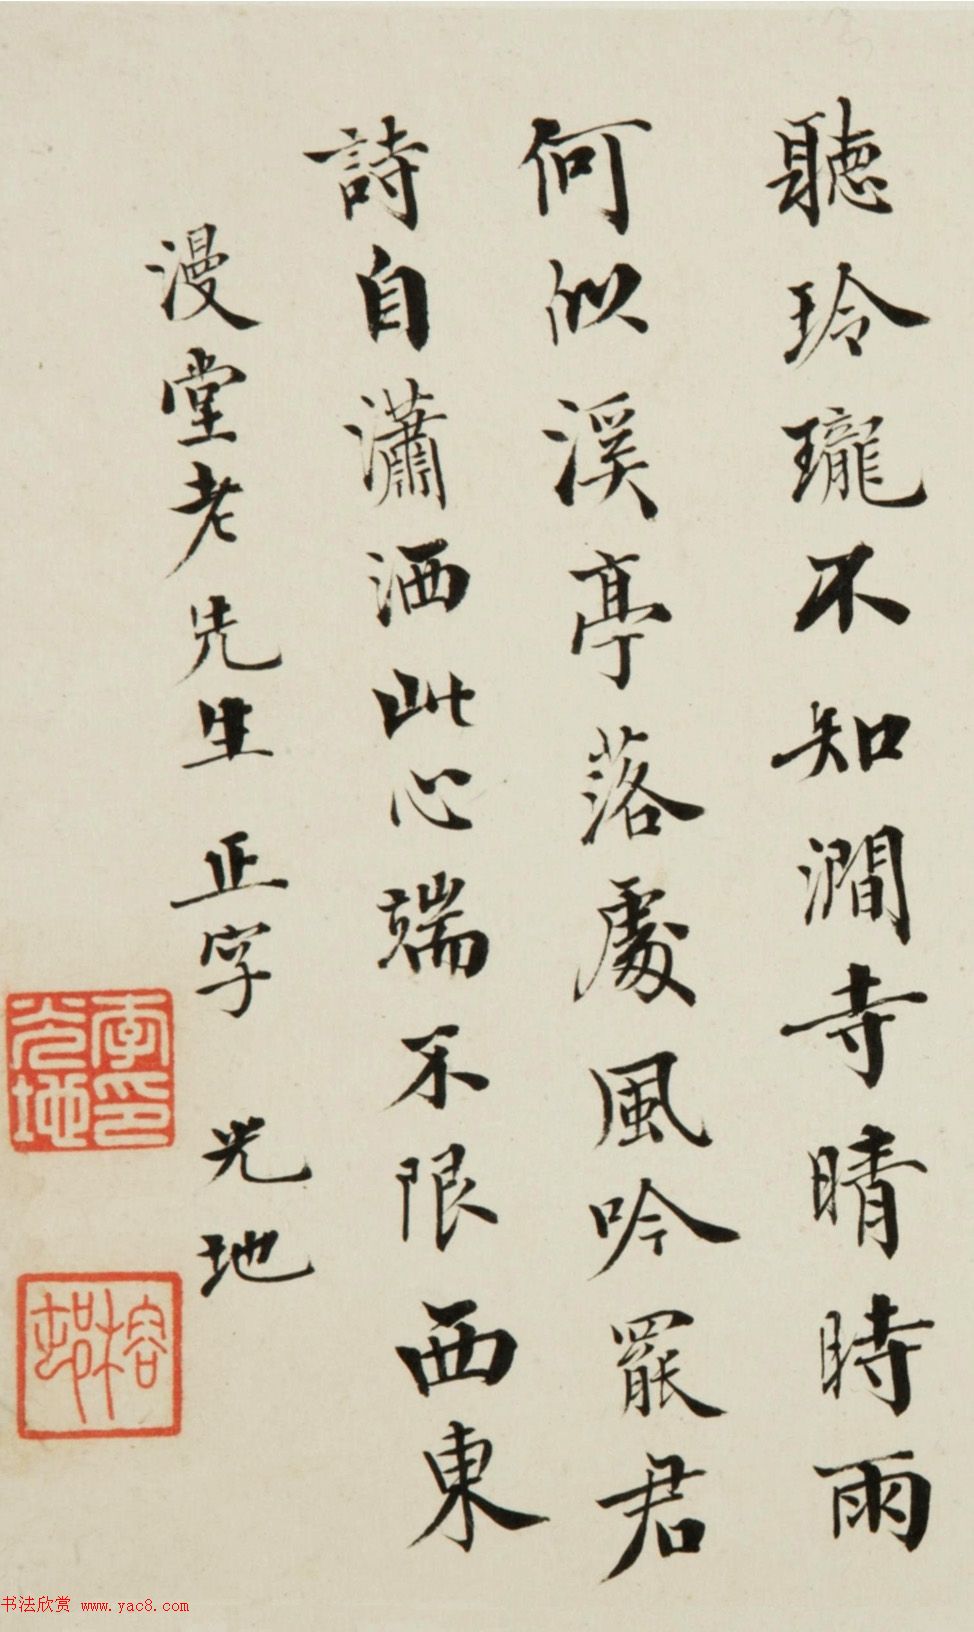 聽玲瓏不知澗寺晴時雨
何似溪亭落處風吟罷君
詩自瀟洒此心端不限西東
漫堂老先生 正字 光地
李光地印
榕邨
书法欣赏 www.yac8.com